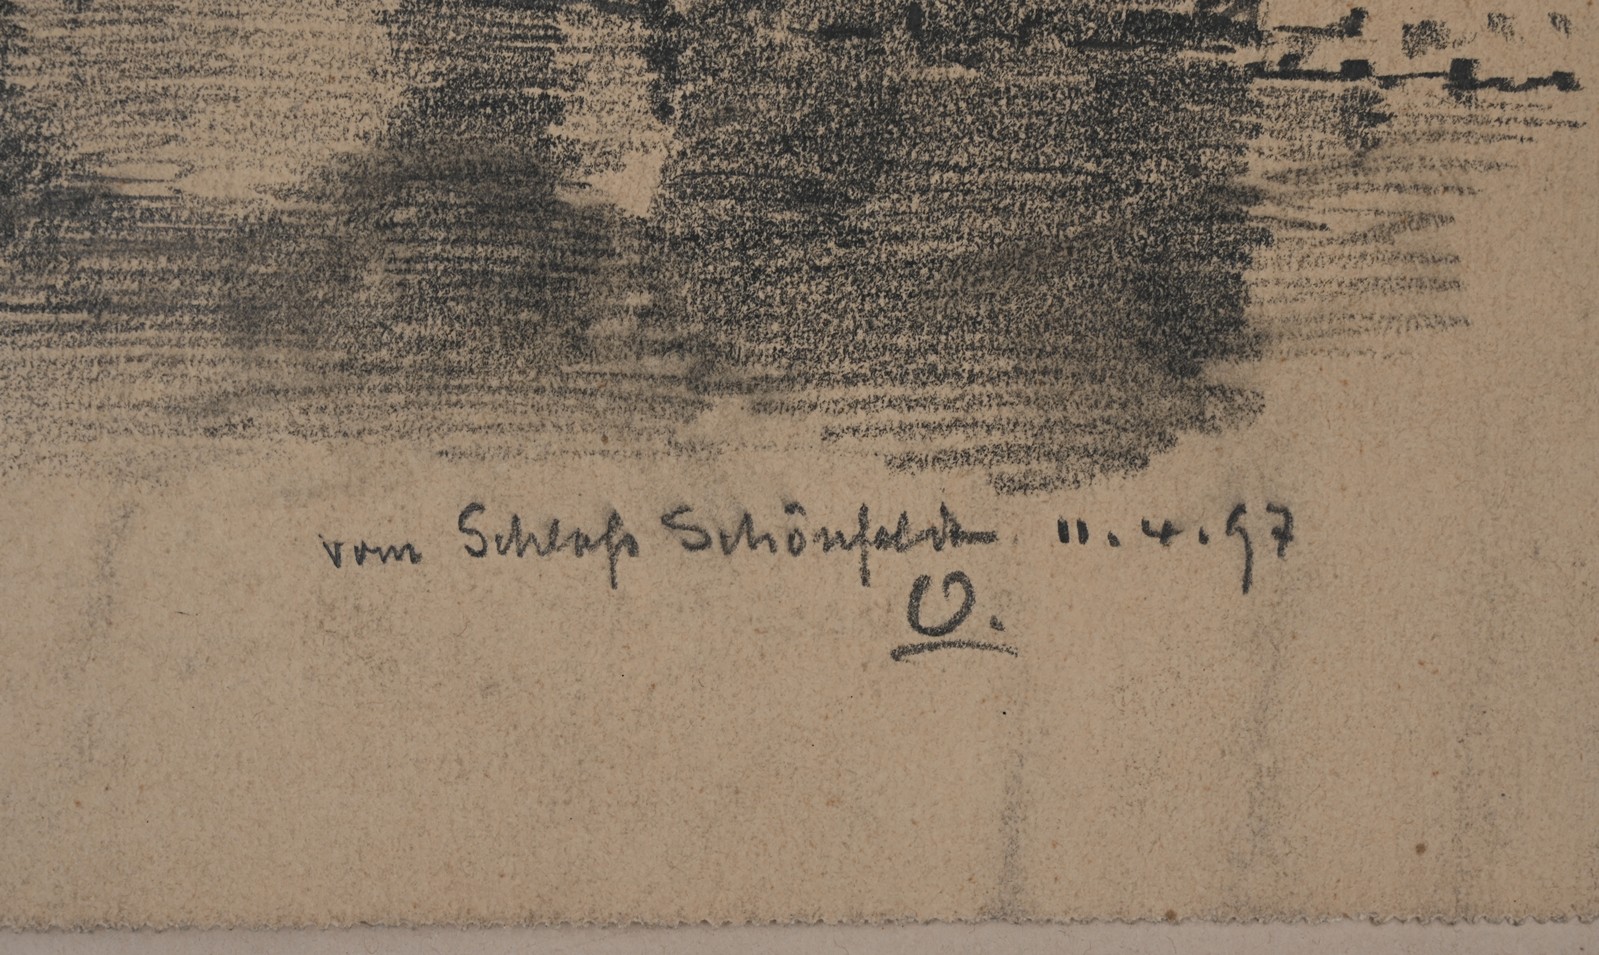 vom Schloß Schönfeld 11.4.97
O.